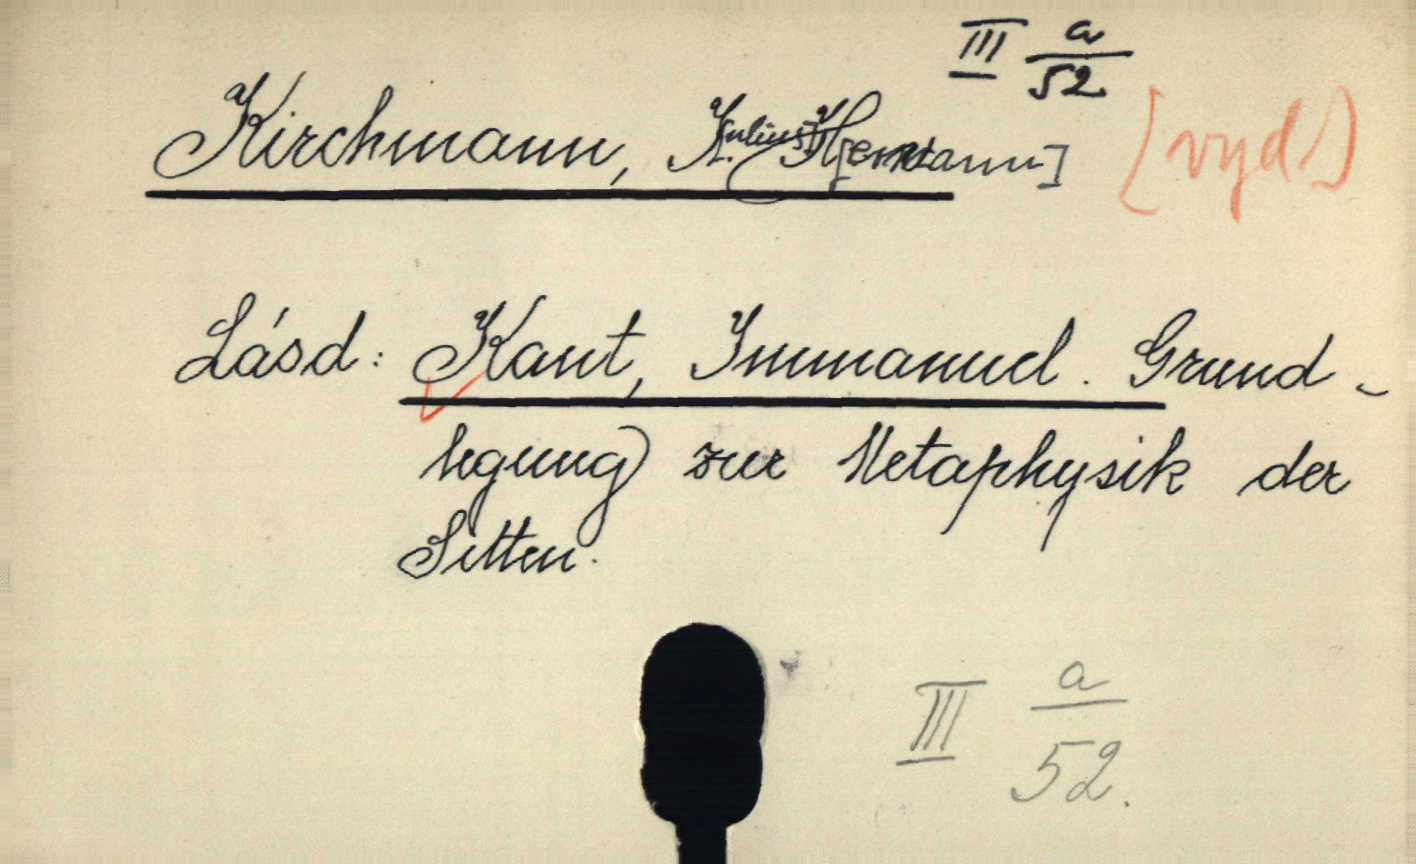 III a/52
Kirchmann, J[ulius] H[ermann] [vyd.]
Lásd: Kant, Immanuel. Grund-
legung zur Metaphysik der
Sitten.
III a/52.